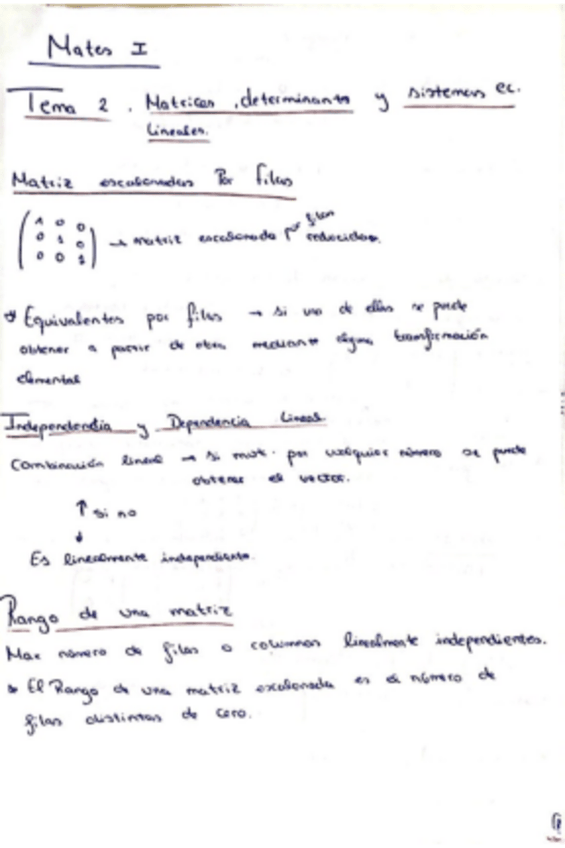 Mates I
Tema 2. Matrices, determinants y sistemas ec.
lineales.
Matriz escalonadas Por filas
1 0 0
0 1 0
0 0 1
→ matriz escalonada por filas reducidas.
Equivalentes por filas → si una de ellas se puede
obtener a partir de otra mediante alguna transformación
elemental
Independendia y Dependencia Lineal
Combinación lineal → si mot. por cualquier número se puede
obtener el vector.
↑ si no
↓
Es linealmente independiente.
Rango de una matriz
Max número de filas o columnas linealmente independientes.
El Rango de una matriz escalonada es el número de
filas distintas de cero.